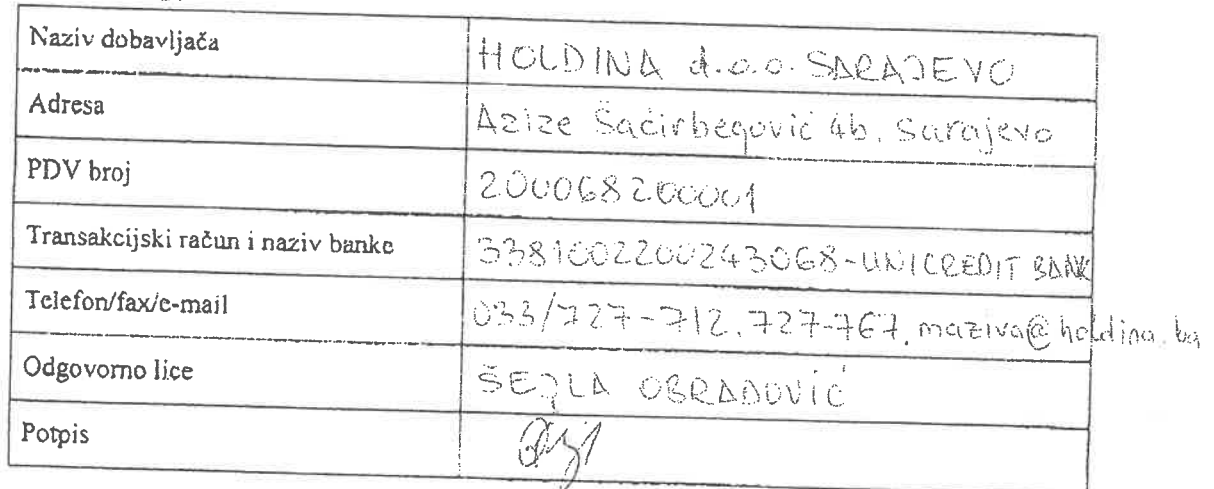 Naziv dobavljača HOLDINA d.o.o. SARAJEVO
Adresa Azize Šaćirbegović 4b, Sarajevo
PDV broj 200068200001
Transakcijski račun i naziv banke 3381002200243068-UNICREDIT BANK
Telefon/fax/e-mail 033/727-712, 727-767, maziva@holdina.ba
Odgovorno lice ŠEJLA OBRADOVIĆ
Potpis